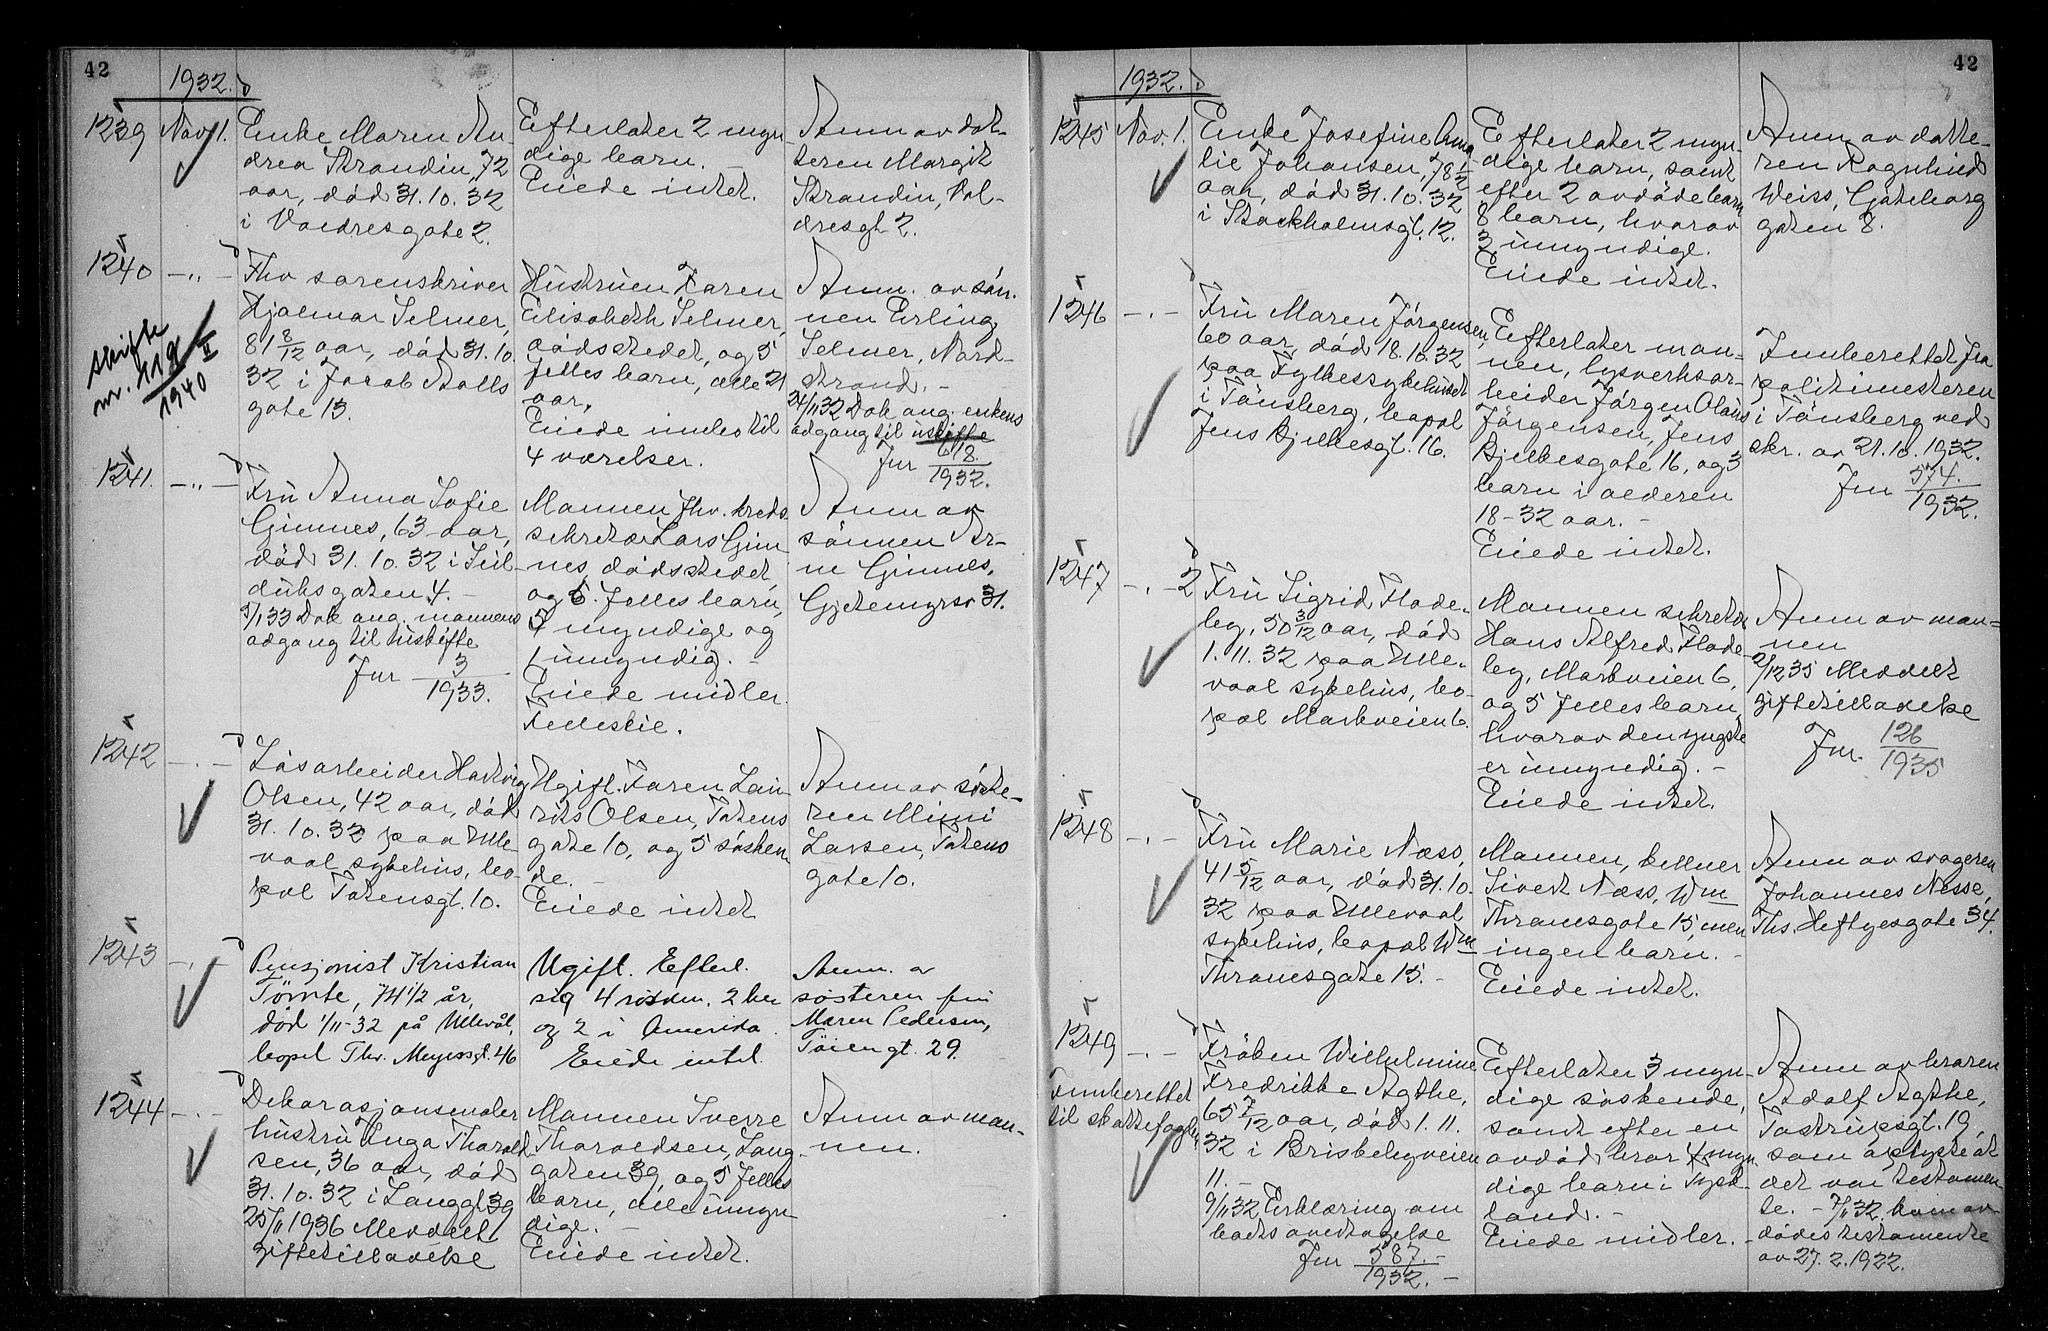 42
1932.
1239 Nov. 1.
Enke Maren An-
drea Strandin, 72
aar, död 31.10.32
i Valdresgate 2.
Efterlater 2 myn-
dige barn. -
Eiede intet.
Anm av dat-
teren Margit
Strandin, Val-
dresgt 2.
1240 -"-
skifte
nr. 119 II
1940
Fhv sorenskriver
Hjalmar Selmer,
81 8/12 aar, död 31.10.
32 i Jacob Aalls
gate 15.
Hustruen Karen
Elisabeth Selmer,
dödsstedet, og 5
felles barn, alle 21
aar.
Eiede indbo til
4 værelser.
Anm. av sön-
nen Erling
Selmer, Nord-
strand. -
24/11 32 Dok ang. enkens
adgang til uskifte
Jnr 618.
1932.
1241. -"-
Fru Anna Sofie
Gimnes, 63 aar,
död 31.10.32 i Seil-
duksgaten 4. -
3/1 33 Dok ang. mannens
adgang til uskifte
Jnr 3
1933.
Mannen fhv. kreds-
sekretær Lars Gim-
nes, dödsstedet,
og 6 felles barn,
5 myndige og
1 umyndig. -
Eiede midler.
Felleseie.
Anm av
sönnen Ar-
ne Gimnes,
Gjetemyrsv 31.
1242 -"-
Lösarbeider Hartvig
Olsen, 42 aar, död
31.10.32 paa Ulle-
vaal sykehus, bo-
pæl Totensgt. 10.
Ugift. Faren Lau-
rits Olsen, Totens
gate 10, og 5 sösken-
de. -
Eiede intet
Anm av söste-
ren Mimi
Larsen, Totens
gate 10.
1243 -"-
Pensjonist Kristian
Tömte, 74 1/2 år,
död 1/11-32 på Ullevål,
bopel Thv. Meyersgt. 46
Ugift. Efterl.
sig 4 södsken. 2 her
og 2 i Amerika.
Eiede intet.
Anm. av
søsteren fru
Maren Pedersen,
Töiengt. 29.
1244 -"-
Dekorasjonsmaler
hustru Inga Thorald-
sen, 36 aar, död
31.10.32 i Langgt 39
25/11 1936 Meddelt
giftetillatelse
Mannen Sverre
Thoraldsen, Lang-
gaten 39, og 5 felles
barn, alle umyn-
dige. -
Eiede intet.
Anm av man-
nen.
42
1932.
1245 Nov. 1.
Enke Josefine Ama-
lie Johansen, 78 1/2
aar, död 31.10.32
i Stockholmsgt. 12.
Efterlater 2 myn-
dige barn, samt
efter 2 avdöde barn
8 barn, hvorav
3 umyndige.
Eiede intet.
Anm av datte-
ren Ragnhild
Weiss, Göteborg
gaten 8.
1246 -"-
Fru Maren Jörgensen,
60 aar, död 18.10.32
paa Fylkessykehuset
i Tönsberg, bopæl
Jens Bjelkesgt. 16.
Efterlater man-
nen, lysverksar-
beider Jörgen Olaus
Jörgensen, Jens
Bjelkesgate 16, og 3
barn i alderen
18-32 aar. -
Eiede intet.
Innberettet fra
politimesteren
i Tönsberg ved
skr. av 21.10.1932.
Jnr 574.
1932.
1247 -"-
Fru Sigrid Flade-
by, 50 3/12 aar, död
1.11.32 paa Ulle-
vaal sykehus, bo-
pæl Markveien 6.
Mannen sekretær
Hans Alfred Flade-
by, Markveien 6,
og 5 felles barn,
hvorav den yngste
er umyndig. -
Eiede intet.
Anm av man-
nen
2/12 35 Meddelt
giftetillatelse
Jnr. 126
1935
1248 -"-
Fru Marie Næss,
41 5/12 aar, död 31.10.
32 paa Ullevaal
sykehus, bopæl Wm
Thranesgate 15. -
Mannen, kellner
Sivert Næss, Wm
Thranesgate 15, men
ingen barn. -
Eiede intet.
Anm av svogeren
Johannes Nesse,
Ths. Heftyesgate 34.
1249 -"-
Innberettet
til skattefogden
Fröken Wilhelmine
Fredrikke Agthe,
65 7/12 aar, död 1.11.
32 i Briskebyveien
11. -
9/11 32 Erklæring om
boets overtagelse
Jnr 587. -
1932. -
Efterlater 3 myn-
dige söskende,
samt efter en
avdöd bror 4 myn-
dige barn i Tysk-
land. -
Eiede midler. -
Anm av broren
Adolf Agthe,
Tostrupsgt. 19
som oplyste at
det var testamen-
te. - 7/11 32 kom av-
dödes testamente
av 27.2.1922.